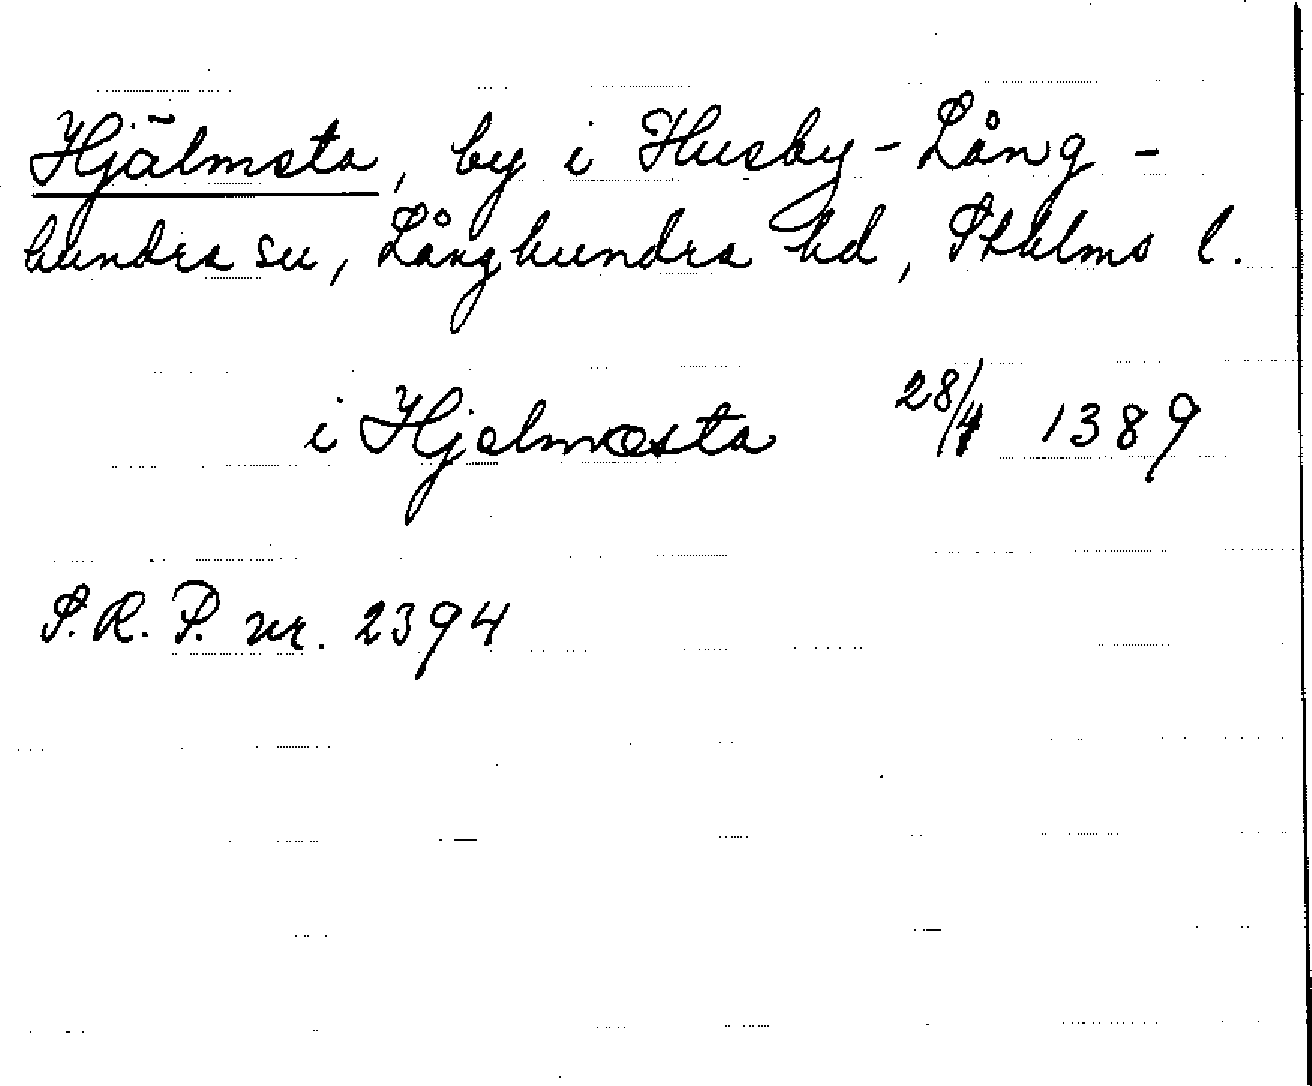 Hjälmsta, by i Husby-Lång-
hundra sn, Långhundra hd, Sthlms l.
i Hjelmæsta 28/4 1389
S.R.P. nr. 2394